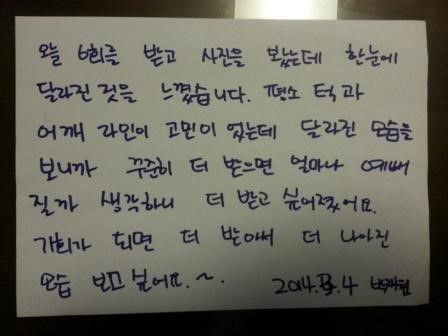 오늘 6회를 받고 사진을 봤는데 한눈에
달라진 것을 느꼈습니다. 평소 턱과
어깨 라인이 고민이 었는데 달라진 모습을
보니까 꾸준히 더 받으면 얼마나 예뻐
질까 생각하니 더 받고 싶어졌어요.
기회가 되면 더 받아서 더 나아진
모습 보고 싶어요.~.
2014. 4